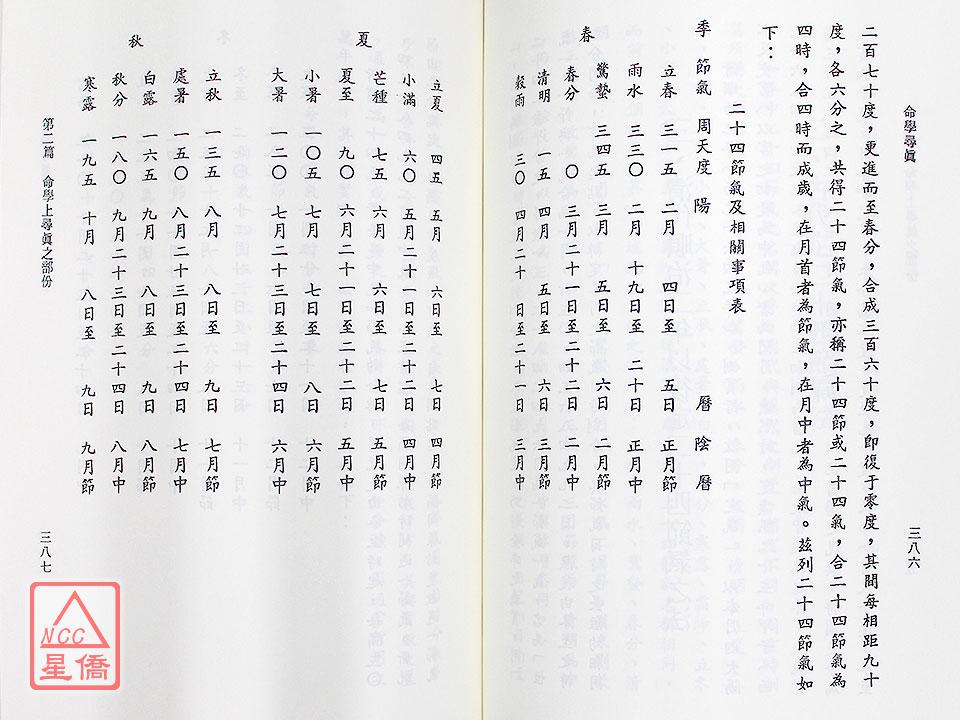 命學尋眞
三八六
二百七十度，更進而至春分，合成三百六十度，卽復于零度，其間每相距九十
度，各六分之，共得二十四節氣，亦稱二十四節或二十四氣，合二十四節氣為
四時，合四時而成歲，在月首者為節氣，在月中者為中氣。茲列二十四節氣如
下：
二十四節氣及相關事項表
季 節氣 周天度 陽曆 陰曆
立春 三一五 二月 四日至 五日 正月節
雨水 三三〇 二月 十九日至 二十日 正月中
驚蟄 三四五 三月 五日至 六日 二月節
春 春分 〇 三月二十一日至二十二日 二月中
清明 一五 四月 五日至 六日 三月節
穀雨 三〇 四月二十日至二十一日 三月中
立夏 四五 五月 六日至 七日 四月節
小滿 六〇 五月二十一日至二十二日 四月中
芒種 七五 六月 六日至 七日 五月節
夏 夏至 九〇 六月二十一日至二十二日 五月中
小暑 一〇五 七月 七日至 八日 六月節
大暑 一二〇 七月二十三日至二十四日 六月中
立秋 一三五 八月 八日至 九日 七月節
處暑 一五〇 八月二十三日至二十四日 七月中
白露 一六五 九月 八日至 九日 八月節
秋 秋分 一八〇 九月二十三日至二十四日 八月中
寒露 一九五 十月 八日至 九日 九月節
第二篇 命學上尋眞之部份
三八七
NCC
星僑